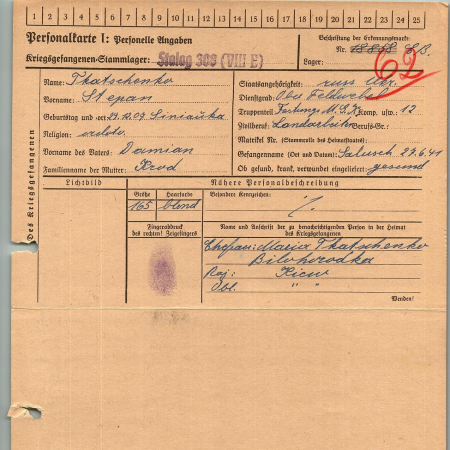 1 2 3 4 5 6 7 8 9 10 11 12 13 14 15 16 17 18 19 20 21 22 23 24 25
Personalkarte I: Personelle Angaben
Beschriftung der Erkennungsmarke
Nr.
Kriegsgefangenen-Stammlager: Stalag 308 (VIII E)
Lager:
62
Des Kriegsgefangenen
Name: Tkatschenko
Vorname: Stepan
Geburtstag und -ort: 24.12.09 Siniauka
Religion: ortod.
Vorname des Vaters: Damian
Familienname der Mutter: Krod
Staatsangehörigkeit: russ Ukr.
Dienstgrad: Ober Feldwebel
Truppenteil: Festungs M.G.K. Komp. usw.: 12
Zivilberuf: Landarbeiter Berufs-Gr.:
Matrikel Nr. (Stammrolle des Heimatstaates):
Gefangennahme (Ort und Datum): 27.6.41
Ob gesund, krank, verwundet eingeliefert: gesund
Lichtbild
Nähere Personalbeschreibung
Größe
Haarfarbe
Besondere Kennzeichen:
165
blond
Fingerabdruck
des rechten! Zeigefingers
Name und Anschrift der zu benachrichtigenden Person in der Heimat
des Kriegsgefangenen
Ehefrau: Maria Tkatschenko
Bilohorodka
Raj: Kiew
Obl. " "
Wenden!